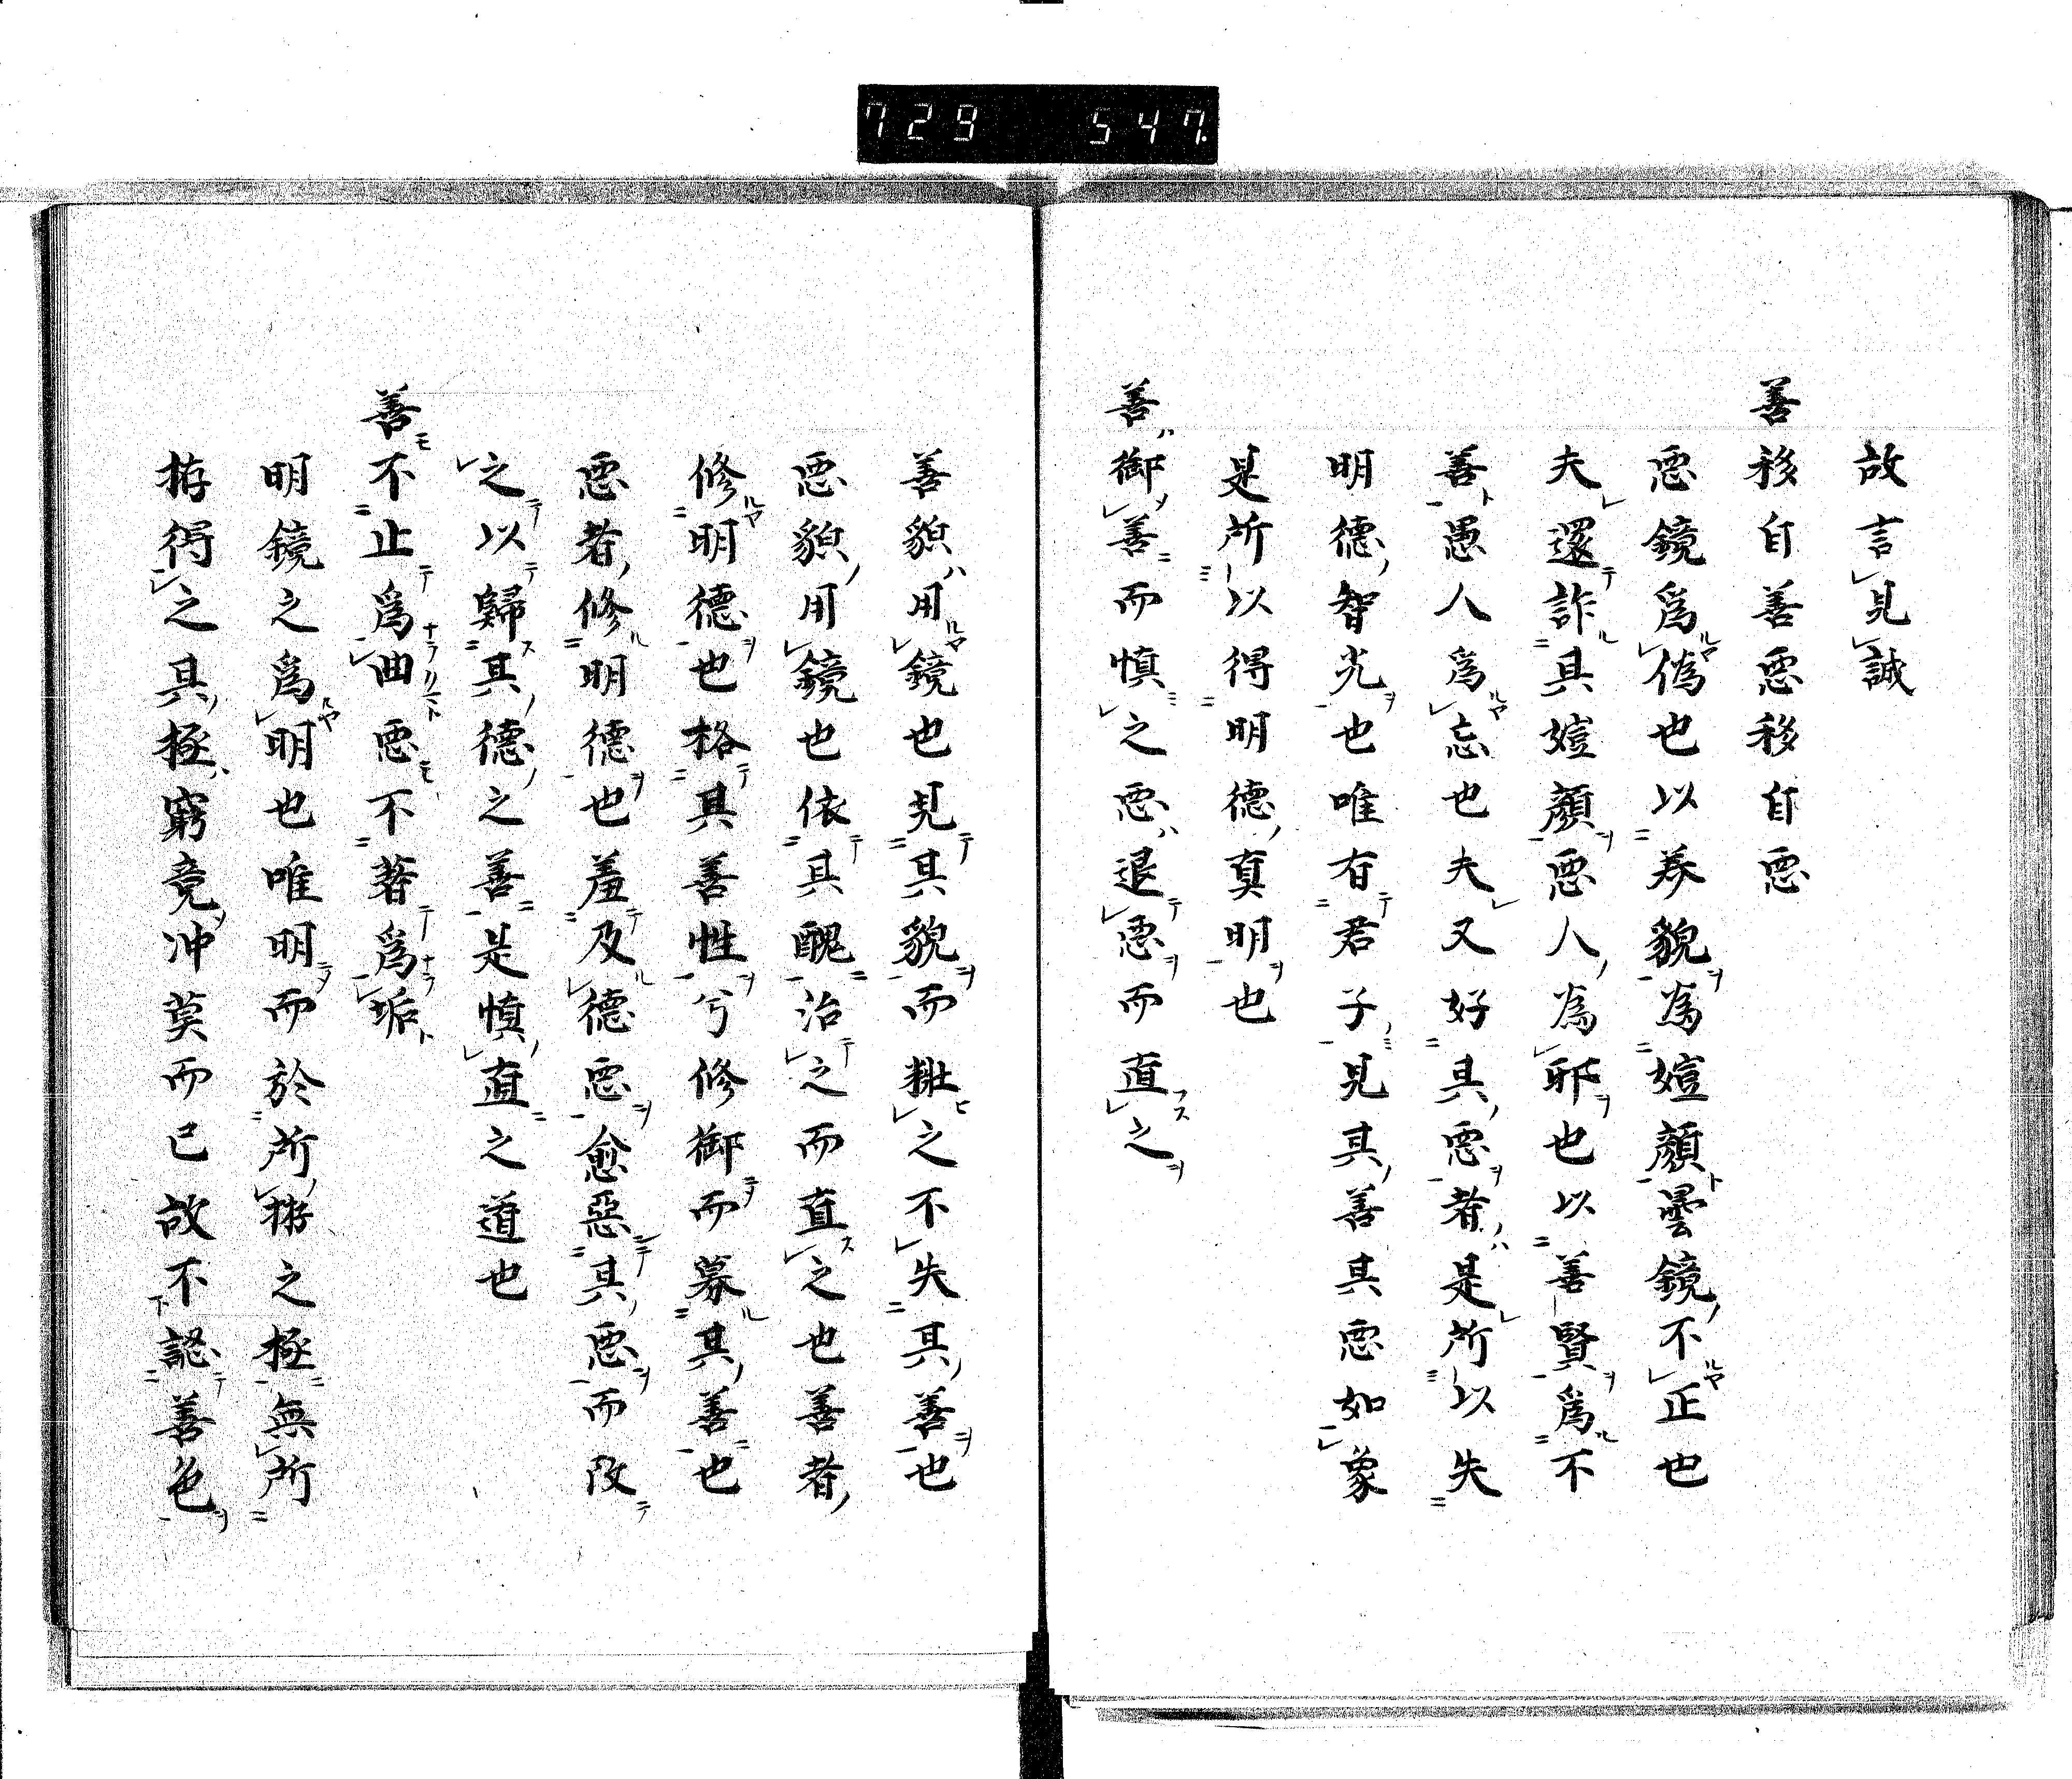 729 547.
故言見誠
善移自善惡移自惡
惡鏡爲偽也以莽貌為嬑顏曇鏡不正也
夫還詐其嬑顏惡人為邪也以善賢爲不
善愚人爲忘也夫又好其惡者是所以失
明德智光也唯有君子見其善其惡如象
是所以得明德真明也
善御善而慎之惡退惡而直之
善貌用鏡也見其貌而粧之不失其善也
惡貌用鏡也依其醜治之而直之也善者
修明德也格其善性兮修御而募其善也
惡者修明德也羞及德惡愈惡其惡而改
之以歸其德之善是慎直之道也
善不止爲曲惡不著爲垢
明鏡之爲明也唯明而於所之極無所
得之其極窮竟冲莫而已故不認善色